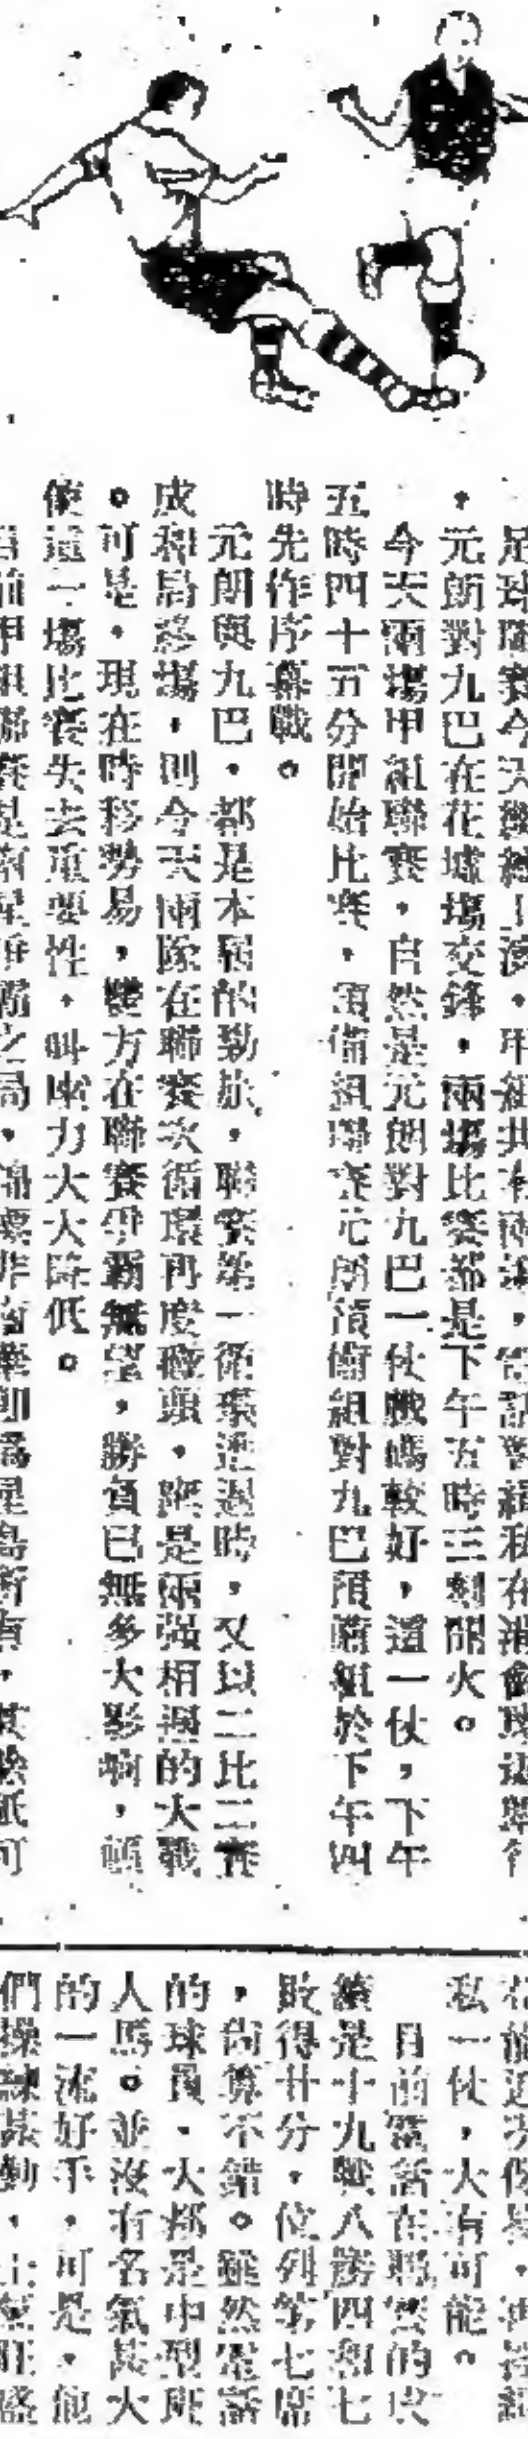 足球聯賽今天繼續上演，甲組共有兩場，電話對緝私在消備球場舉行
，元朗對九巴在花墟場交鋒，兩場比賽都是下午五時三刻開火。
今天兩場甲組聯賽，自然是元朗對九巴一仗戲碼較好，這一仗，下午
五時四十五分開始比賽，預備組聯賽元朗預備組對九巴預備組於下午四
時先作序幕戰。
元朗與九巴，都是本屆的勁旅，聯賽第一循環遭遇時，又以二比二賽
成和局終場，則今天兩隊在聯賽次循環再度碰頭，應是兩强相遇的大戰
。可是，現在時移勢易，雙方在聯賽爭霸無望，勝負已無多大影响，頓
使這一場比賽失去重要性，叫座力大大降低。
目前甲組聯賽是南星爭霸之局，錦標非南華即為星島所有，其餘祇可
私一仗，大有可能。
目前電話在聯賽的成
績是十九戰八勝四和七
敗得廿分，位列第七席
，尚算不錯。雖然電話
的球員，大都是中型班
人馬。並沒有名氣甚大
的一流好手，可是，他
們操練甚勤，士氣旺盛